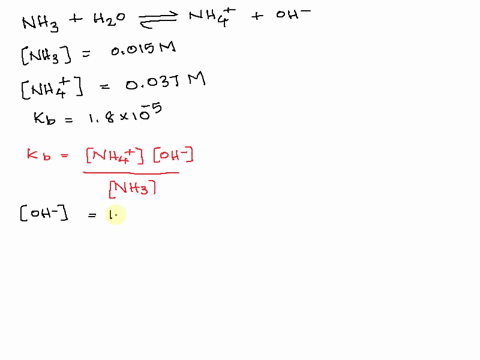 NH₃ + H₂O ⇌ NH₄⁺ + OH⁻
[NH₃] = 0.015 M
[NH₄⁺] = 0.035 M
Kb = 1.8 × 10⁻⁵
Kb = [NH₄⁺] [OH⁻]
[NH₃]
[OH⁻] = 1.